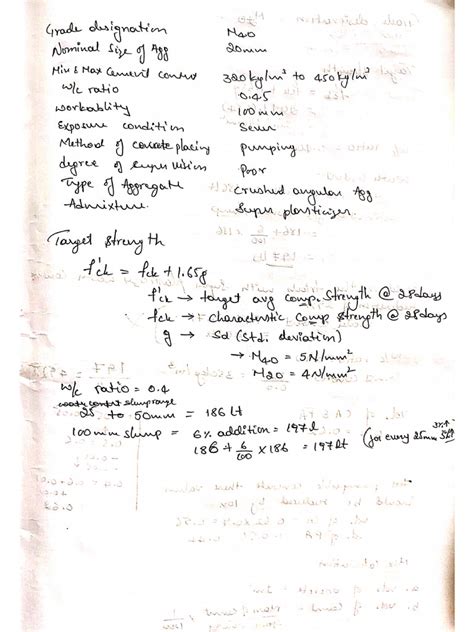 Grade designation M40
Nominal Size of Agg 20mm
Min & Max Cement content 320kg/m³ to 450kg/m³
W/c ratio 0.45
Workablity 100mm
Exposure condition Sever
Method of concrete placing pumping
degree of supervision Poor
Type of Aggregate Crushed angular Agg
Admixture Super plasticizer
Target Strength
f'ck = fck + 1.65s
f'ck → target avg Comp. Strength @ 28days
fck → Characteristic Comp Strength @ 28days
s → Sd (Std. deviation)
→ M40 = 5N/mm²
M20 = 4N/mm²
W/c ratio = 0.4
slump range
25 to 50mm = 186 Lt
100mm slump = 6% addition = 197 l
186 + 6/100 × 186 = 197lt (for every 25mm 3%↑